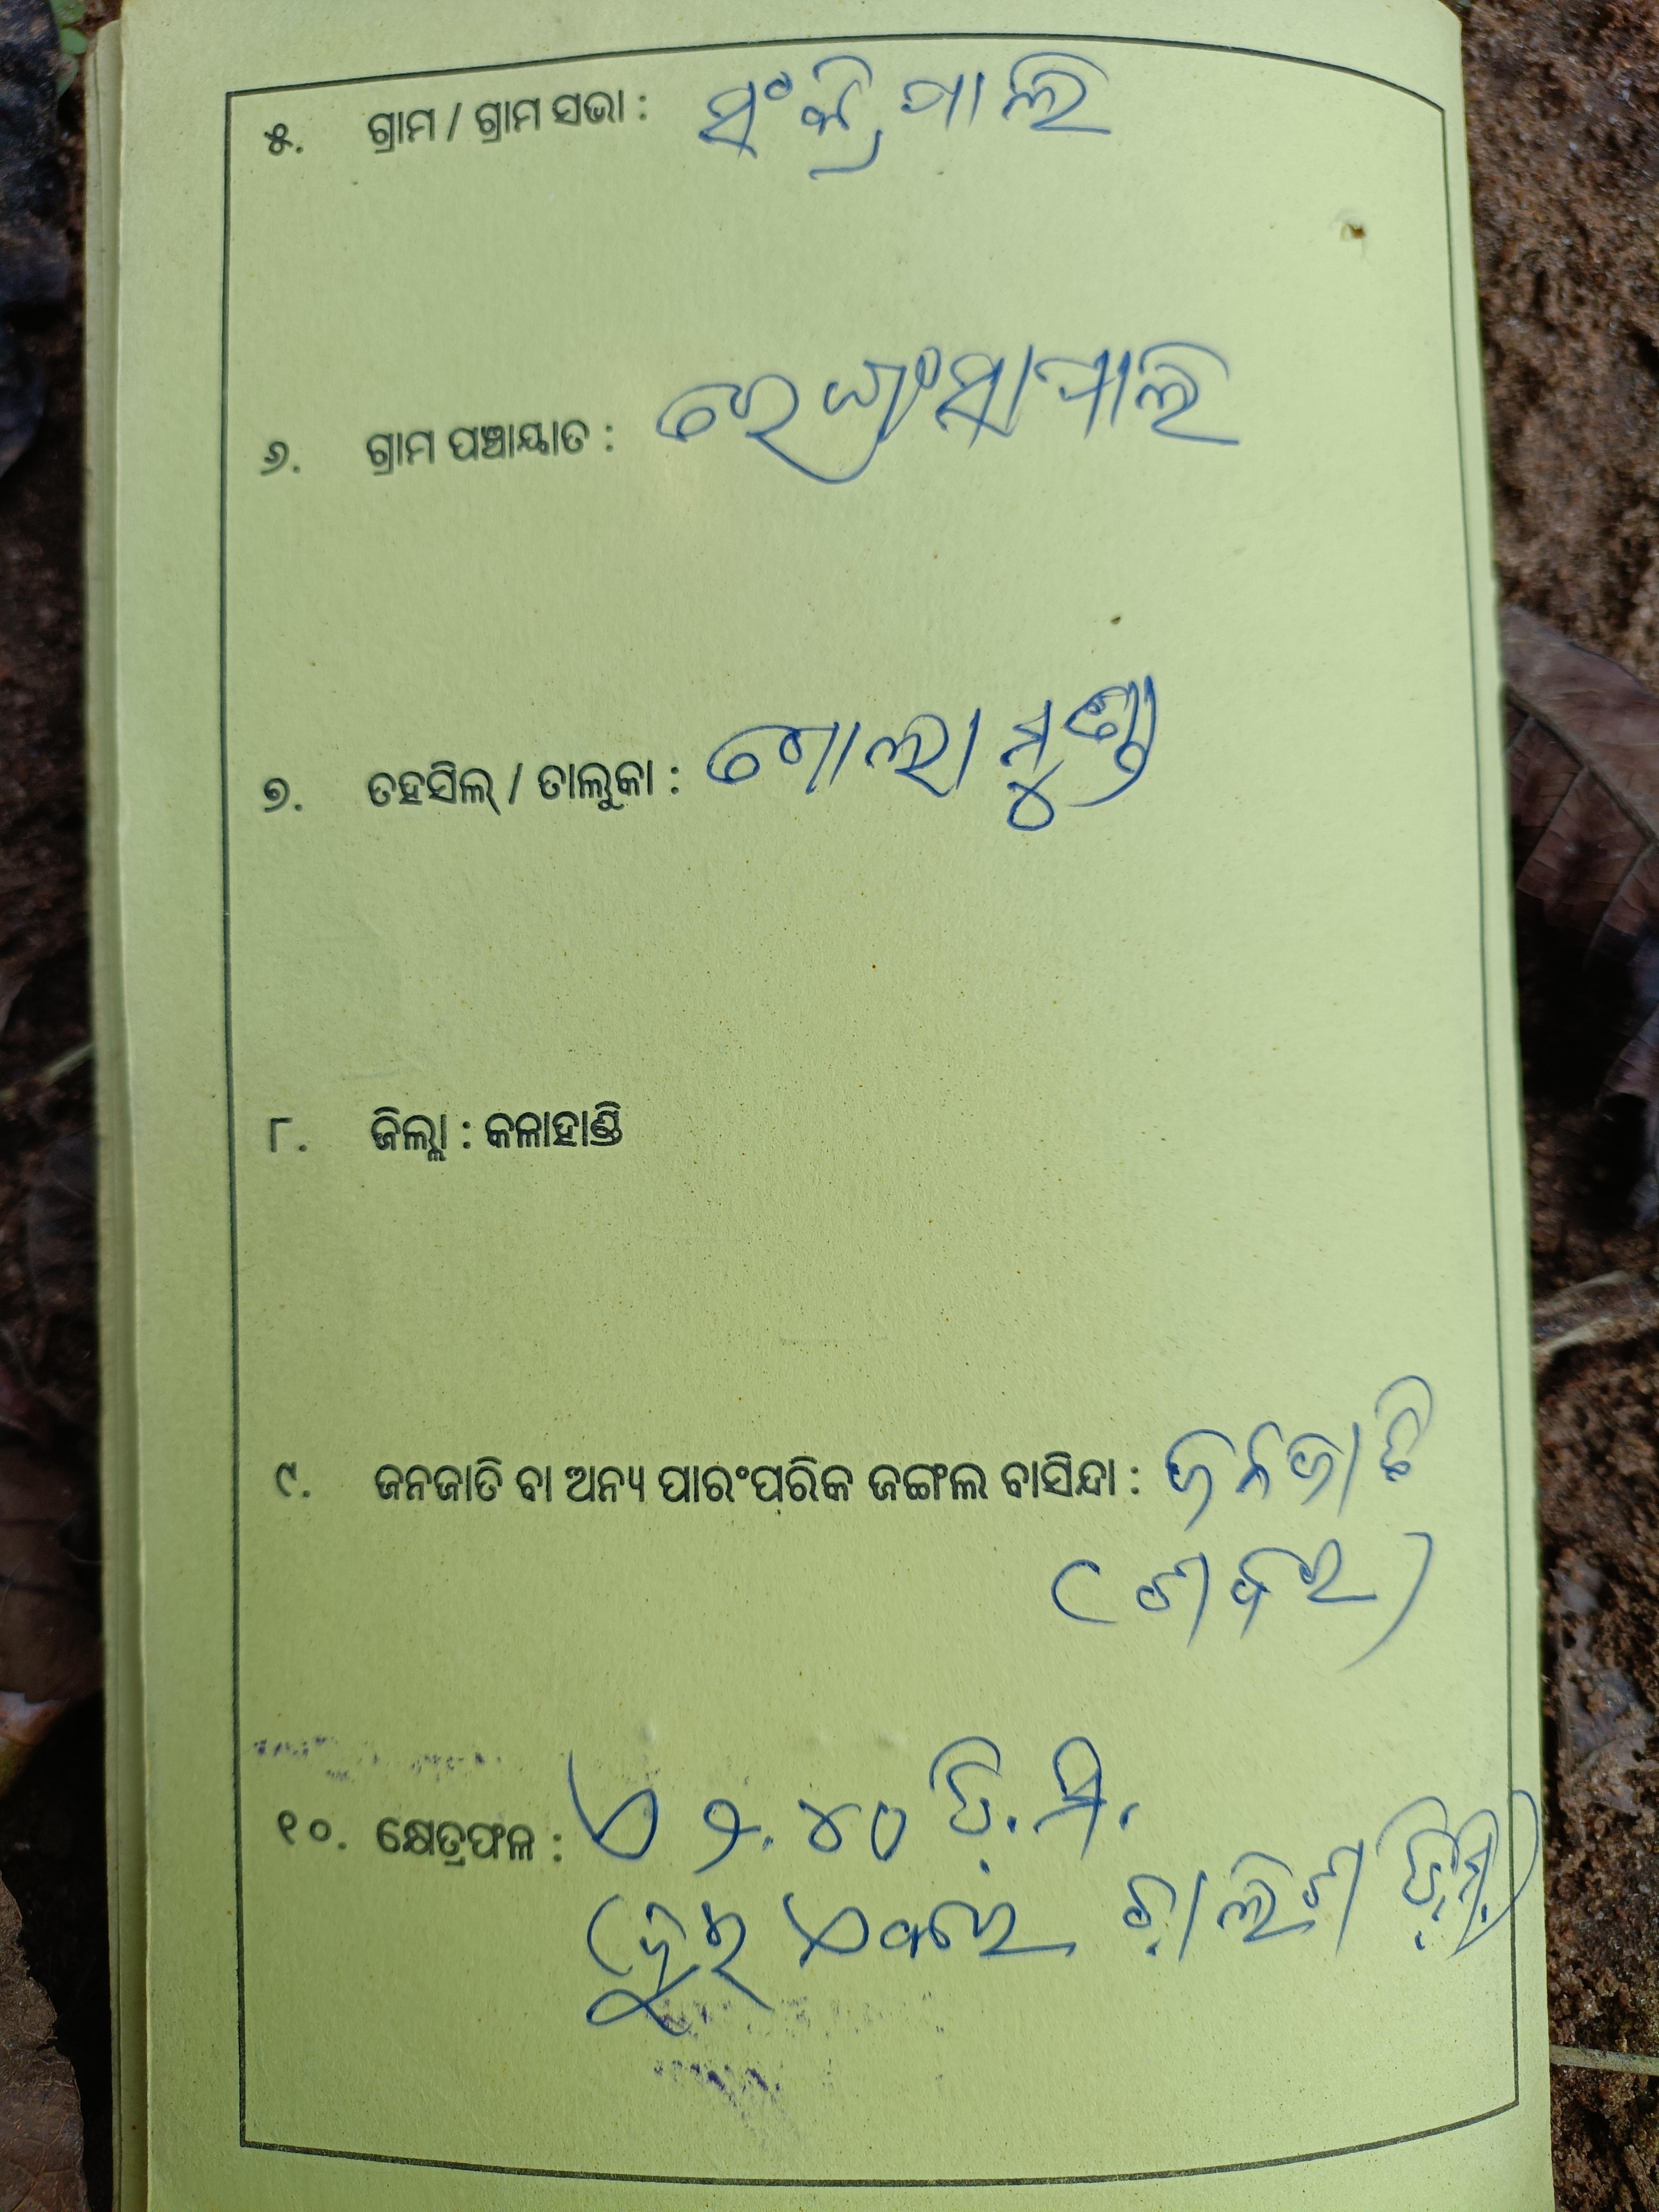 ୫. ଗ୍ରାମ / ଗ୍ରାମ ସଭା : ସଂକ୍ରିପାଲି
୬. ଗ୍ରାମ ପଞ୍ଚାୟାତ :
୭. ତହସିଲ୍ / ତାଲୁକା : ଗୋଲାମୁଣ୍ଡା
୮. ଜିଲ୍ଲା : କଳାହାଣ୍ଡି
୯. ଜନଜାତି ବା ଅନ୍ୟ ପାରଂପରିକ ଜଙ୍ଗଲ ବାସିନ୍ଦା : ଜନଜାତି
(ଶବର)
୧୦. କ୍ଷେତ୍ରଫଳ : ଏ ୨.୪୦ ଡ଼ି.ମି.
(ଦୁଇ ଏକର ଚାଲିଶ ଡ଼ି.ମି.)